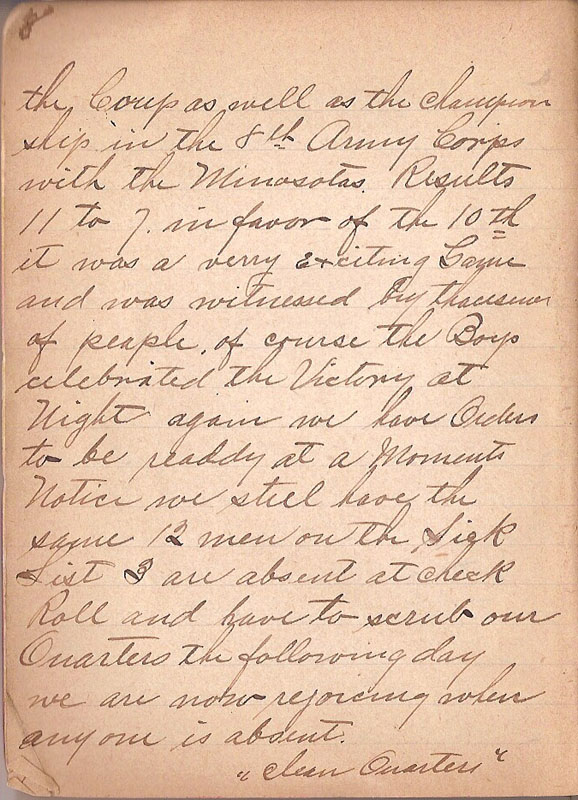 the Coups as well as the champion
ship in the 8th Army Corps
with the Minosotas. Results
11 to 7. in favor of the 10th
it was a verry exciting Game
and was witnessed by
of peaple, of course the Boys
celebrated the Victory at
Night again we have Orders
to be readdy at a Moments
Notice we steel have the
same 12 men on the Sick
List 3 are absent at check
Roll and have to scrub our
Quarters the following day
we are now rejoicing when
any one is absent.
"Clean Quarters"